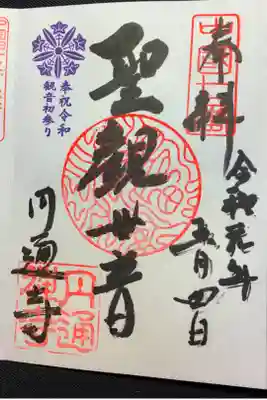 奉拝
令和元年
五月四日
聖観世音
奉祝令和
観音初参り
円通寺
円通
寺